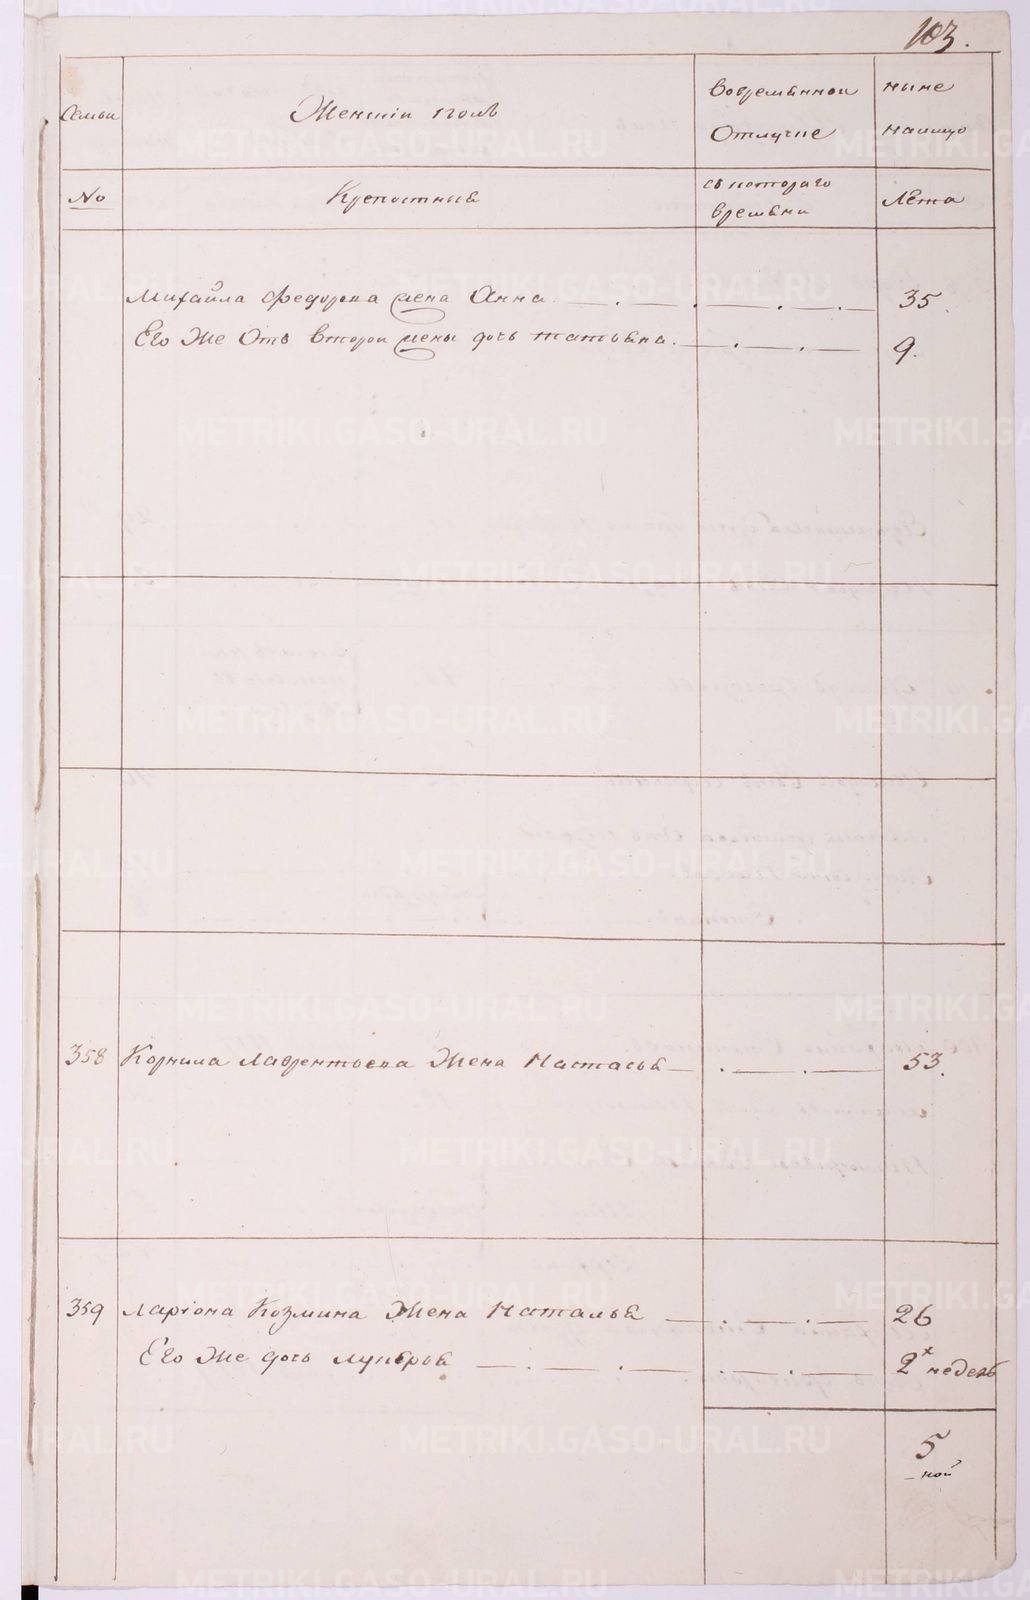 103.
Семьи
Женскіи полъ
Во временнои
Отлучке
ныне
налицо
№
Крепостныя
съ котораго
времѣни
Лета
Михайла Федорова жена Анна
35.
Его же Отъ второи жены дочь татьяна.
9.
358
Корнила Лаврентьева Жена Настасья
53.
359
Ларіона Козмина Жена Наталья
26
Его же дочь лукерья
2х недель
5
ной
METRIKI.GASO-URAL.RU